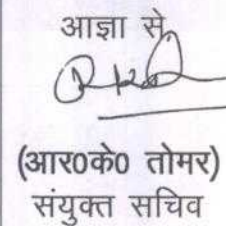 आज्ञा से,
(आर0के0 तोमर)
संयुक्त सचिव